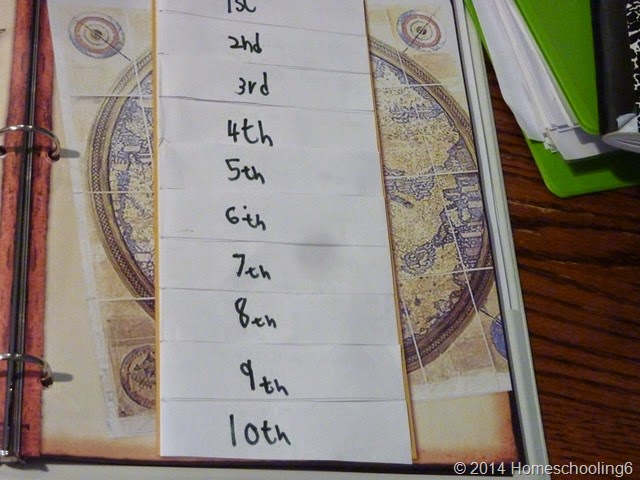 1st
2nd
3rd
4th
5th
6th
7th
8th
9th
10th
© 2014 Homeschooling6